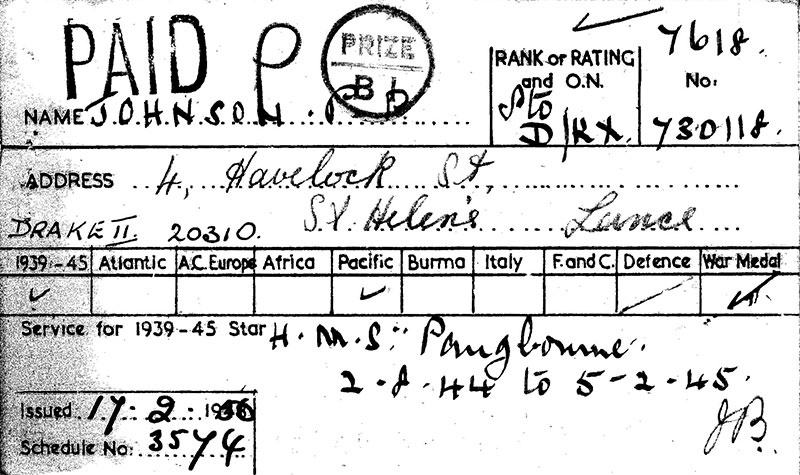 PAID P PRIZE
B 1
RANK or RATING and O.N. 7618.
No:
NAME JOHNSON.
Sto D/KX. 730118.
ADDRESS 4, Havelock St,
DRAKE II. 20310. St. Helen's Lancs
1939-45 Atlantic A.C. Europe Africa Pacific Burma Italy F. and C. Defence War Medal
Service for 1939-45 Star H.M.S. Pangbourne.
2-8-44 to 5-2-45.
Issued 17.2.19
Schedule No: 3574
JB.